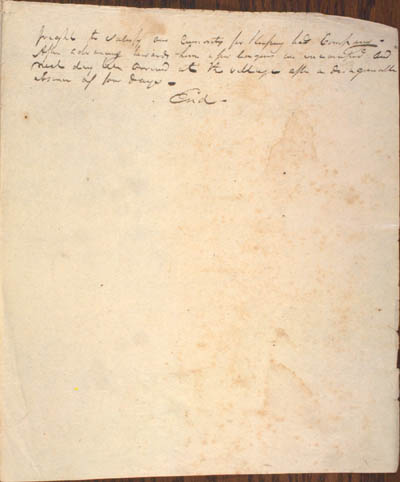 fright to satisfy our curiosity for keeping his Company -
After advancing towards them a few leagues we encamped and
next day we arrived at the village after a disagreeable
absence of four days -
End -